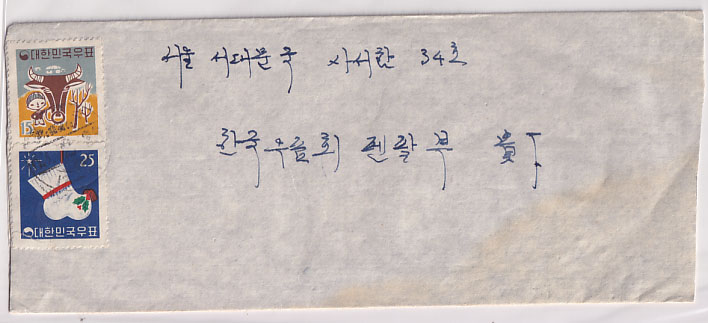 대한민국우표
15
25
대한민국우표
서울 서대문국 사서함 34호
한국우표회 펜팔부 貴下